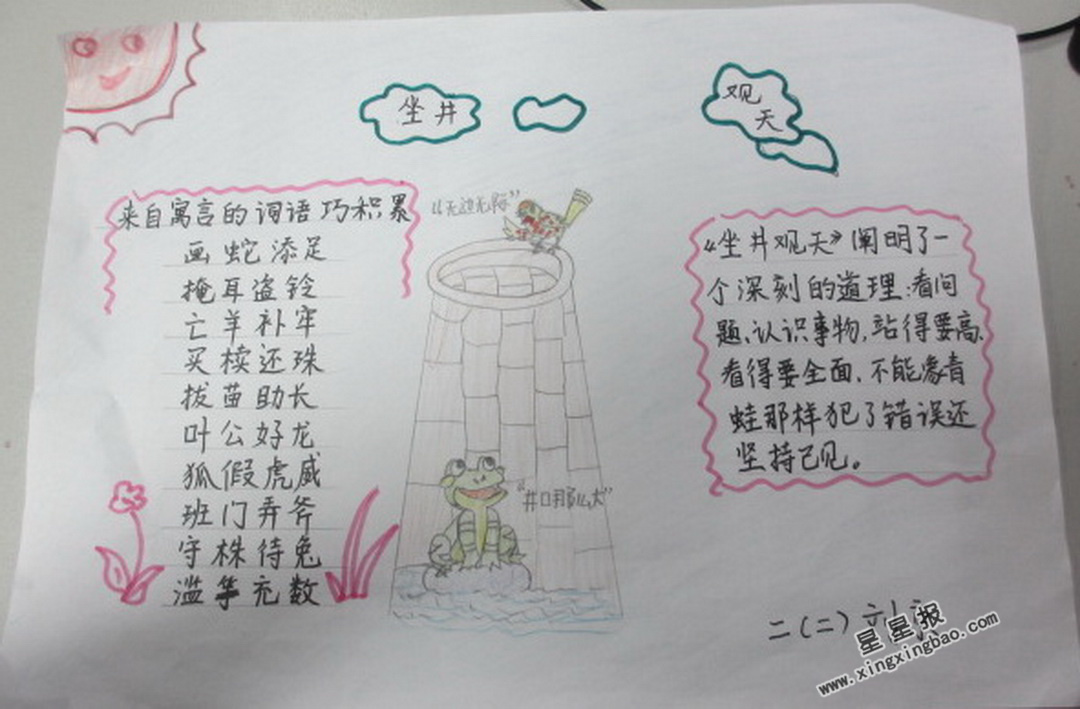 坐井
观
天
来自寓言的词语巧积累
画蛇添足
掩耳盗铃
亡羊补牢
买椟还珠
拔苗助长
叶公好龙
狐假虎威
班门弄斧
守株待兔
滥竽充数
“无边无际”
“井口那么大”
《坐井观天》阐明了一
个深刻的道理:看问
题、认识事物,站得要高、
看得要全面,不能像青
蛙那样犯了错误还
坚持己见。
二(二)
星星报
www.xingxingbao.com